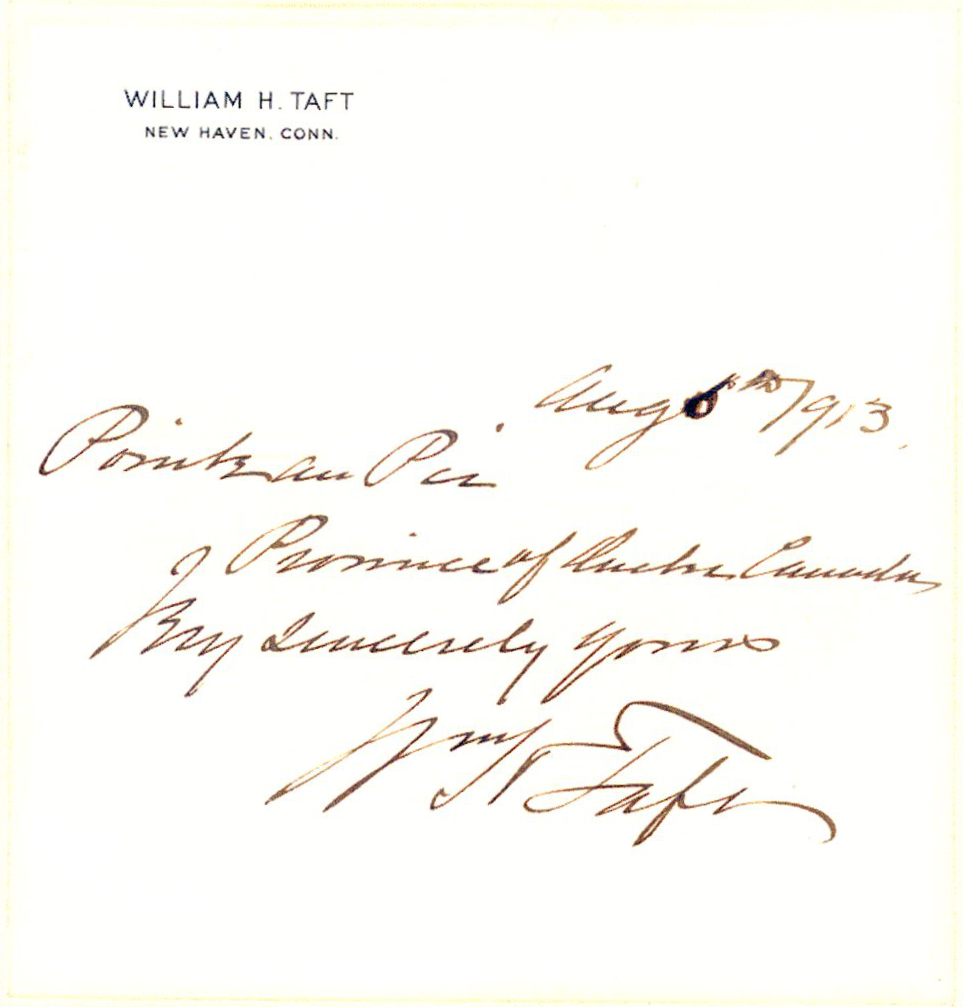 WILLIAM H. TAFT
NEW HAVEN. CONN.
Aug 1913
Pointe au Pic
Province of Quebec Canada
Very Sincerely yours
Wm H Taft